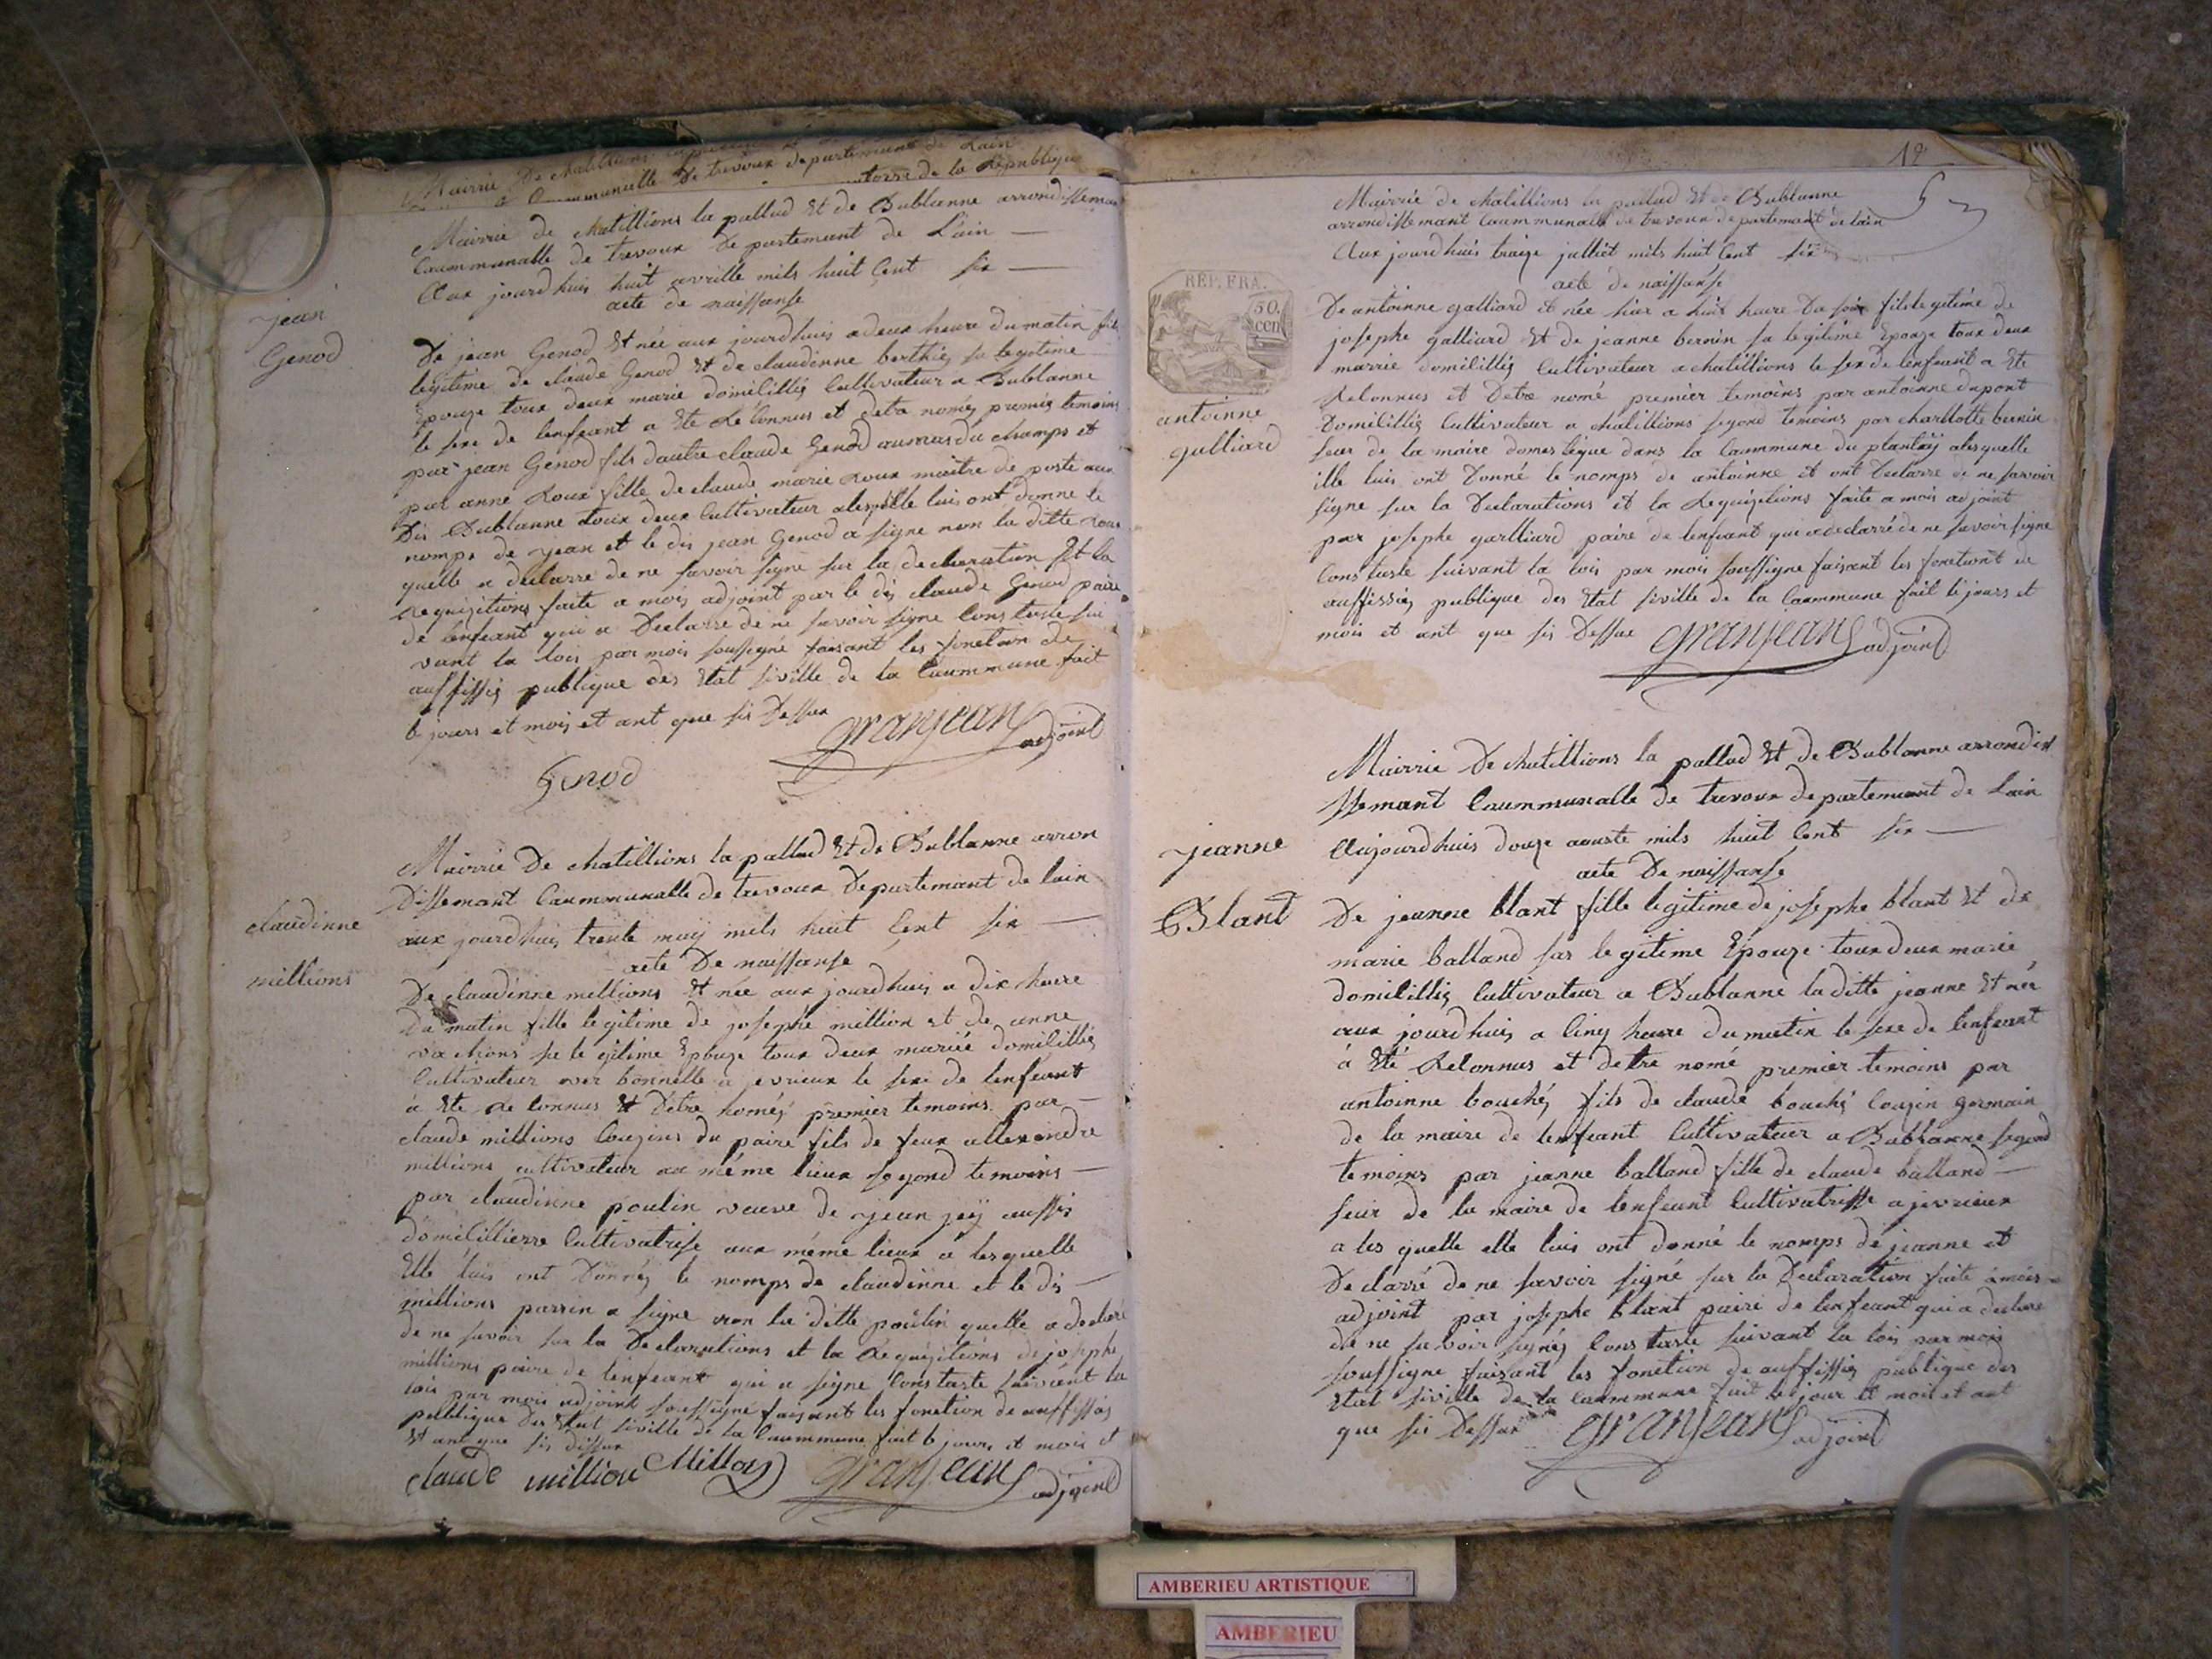 Mairrie de chatillions
Communalle de trevoux departemant de Lain
de la Republique
Mairrie de chatillions la pallud Et de Bublanne arrondissemant
Caummunalle de trevoux departemant de L'ain
Aux jourdhuis huit avrille mils huit Cent six
acte de naissanse
jean
Genod
De jean Genod Et née aux jourdhuis a deux heure du matin fils
legitime de claude Genod Et de claudinne berthié sa legitime
Epouze toux deux marié domicillié Cultivateur a Bublanne
le sexe de lenfeant a Ete Réconnus et detre només premié temoins
par jean Genod fils dautre claude Genod au mas du champs et
par anne Roux fille de claude marie Roux maitre de poste aux
dis Bublanne toux deux Cultivateur alesquelle luis ont donne le
nomps de jean et le dis jean Genod a signe non la ditte Roux
quelle a declarre de ne savoir signe sur la declaration Et la
Requizitions faite a mois adjoint par le dis claude Genod paire
de lenfeant qui a Declarre de ne savoir signe Constaste sui
vant la lois par mois soussigné faisant les fonction de
auffissié publique des Etat siville de la Caummune fait
le jours et mois et ant que sis Dessux granjean adjoint
Genod
Mairrie De chatillions la pallud Et de Bublanne arron
dissemant Caummunalle de trevoux Departemant de lain
aux jourdhuis trente maij mils huit Cent six
acte De naissanse
claudinne
millions
De claudinne millions Et née aux jourdhuis a dix heure
du matin fille legitime de josephe million et de anne
vachions sa legitime Epouze toux deux mariée domicilliés
Cultivateur a jevrieux le sexe de lenfeant
a Ete Reconnus Et detre només premier temoins par
claude millions Couzins du paire fils de feux allexandre
millions cultivateur au méme lieux segond temoins
par claudinne poulin veuve de jean jeÿ aussis
domicillierre Cultivatrise aux méme lieux a lesquelle
Elle luis ont Donnés le nomps de claudinne et le dis
millions parrin a signe non la ditte poulin quelle a declaré
de ne savoir sur la Declarations et la Requizitions de josephe
millions paire de lenfeant qui a signe Constaste suivant la
lois par mois adjoint soussigné faisant les fonction de auffissiés
publique des Etat siville de la Caummune fait le jours et mois et
Et ant que sis dessux
claude million Millon granjean adjoint
19
Mairrie de chatillions la pallud Et de Bublanne
arrondissemant Caummunalle de trevoux departemant de lain
Aux jourdhuis traize julliet mils huit Cent six
acte de naissanse
RÉP. FRA.
50.
cen
antoinne
galliard
De antoinne galliard et née hier a huit heure du soir fils legitime de
josephe galliard Et de jeanne bernin sa legitime Epouze toux deux
marrie domicillié Cultivateur a chatillions le sexe de lenfeant a Ete
Reconnus et Detre nomé premier temoins par antoinne dupont
Domicillié Cultivateur a chatillions segond temoins par charllotte bernin
seur de la maire domestique dans la Caummune du plantaÿ alesquelle
ille luis ont Donné le nomps de antoinne et ont declarre de ne savoir
signe sur la Declarations et la Requizitions faite a mois adjoint
par josephe garlliard paire de lenfeant qui a declarré de ne savoir signe
Constaste suivant la lois par mois soussigne faisant les fonctiont de
auffissiés publique des Etat siville de la Caummune fait le jours et
mois et ant que sis Dessux granjean adjoint
Mairrie De chatillions la pallud Et de Bublanne arrondis
ssemant Caummunalle de trevoux departemant de Lain
Aujourdhuis douze aouste mils huit Cent six
acte De naissanse
jeanne
Blant
De jeanne blant fille legitime de josephe blant Et de
marie balland sas legitime Epouze toux deux marié
domicillié Cultivateur a Bublanne laditte jeanne Et née
aux jourdhuis a Cinq heure du matin le sexe de lenfeant
à Eté Reconnus et detre nomé premier temoins par
antoinne bouché fils de claude bouché Couzin germain
de la maire de lenfeant Cultivateur a Bublanne segond
temoins par jeanne balland fille de claude balland
seur de la maire de lenfeant Cultivatrisse a jevrieux
a les quelle elle luis ont donné le nomps de jeanne et
Declarré de ne savoir signé sur la Declaration faite à mois
adjoint par josephe blant paire de lenfeant qui a declare
de ne savoir signés Constaste suivant la lois par mois
soussigne faisant les fonction de auffissiés publique des
Etat siville de la Caummune fait le jour Et mois et ant
que sis Dessux granjean adjoint
AMBERIEU ARTISTIQUE
AMBERIEU